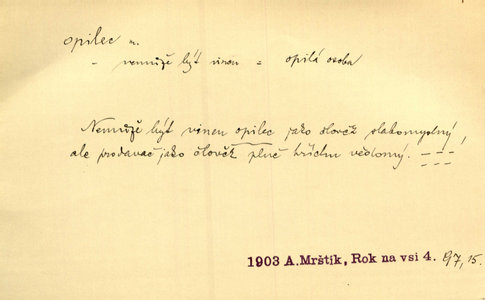 opilec m.
- nemůže být vinen = opilá osoba
Nemůže být vinen opilec jako člověk slabomyslný,
ale prodavač jako člověk plně hříchu vědomý. ---
1903 A. Mrštík, Rok na vsi 4. 97, 15.